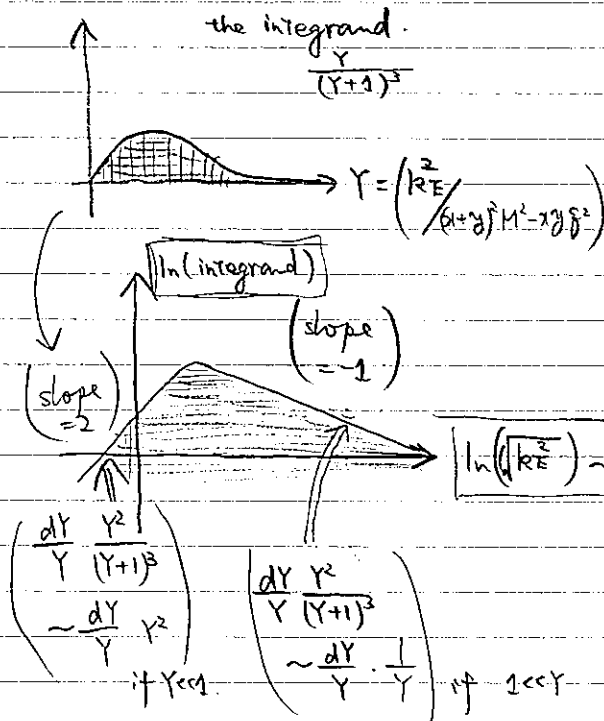 the integrand.
Y / (Y+1)³
Y = (k_E² / (x+y)²M²-xyq²)
ln(integrand)
(slope = -1)
(slope = 2)
ln(√k_E²) ~
(dY/Y Y²/(Y+1)³
~ dY/Y Y²)
if Y<<1.
(dY/Y Y²/(Y+1)³
~ dY/Y · 1/Y) if 1<<Y